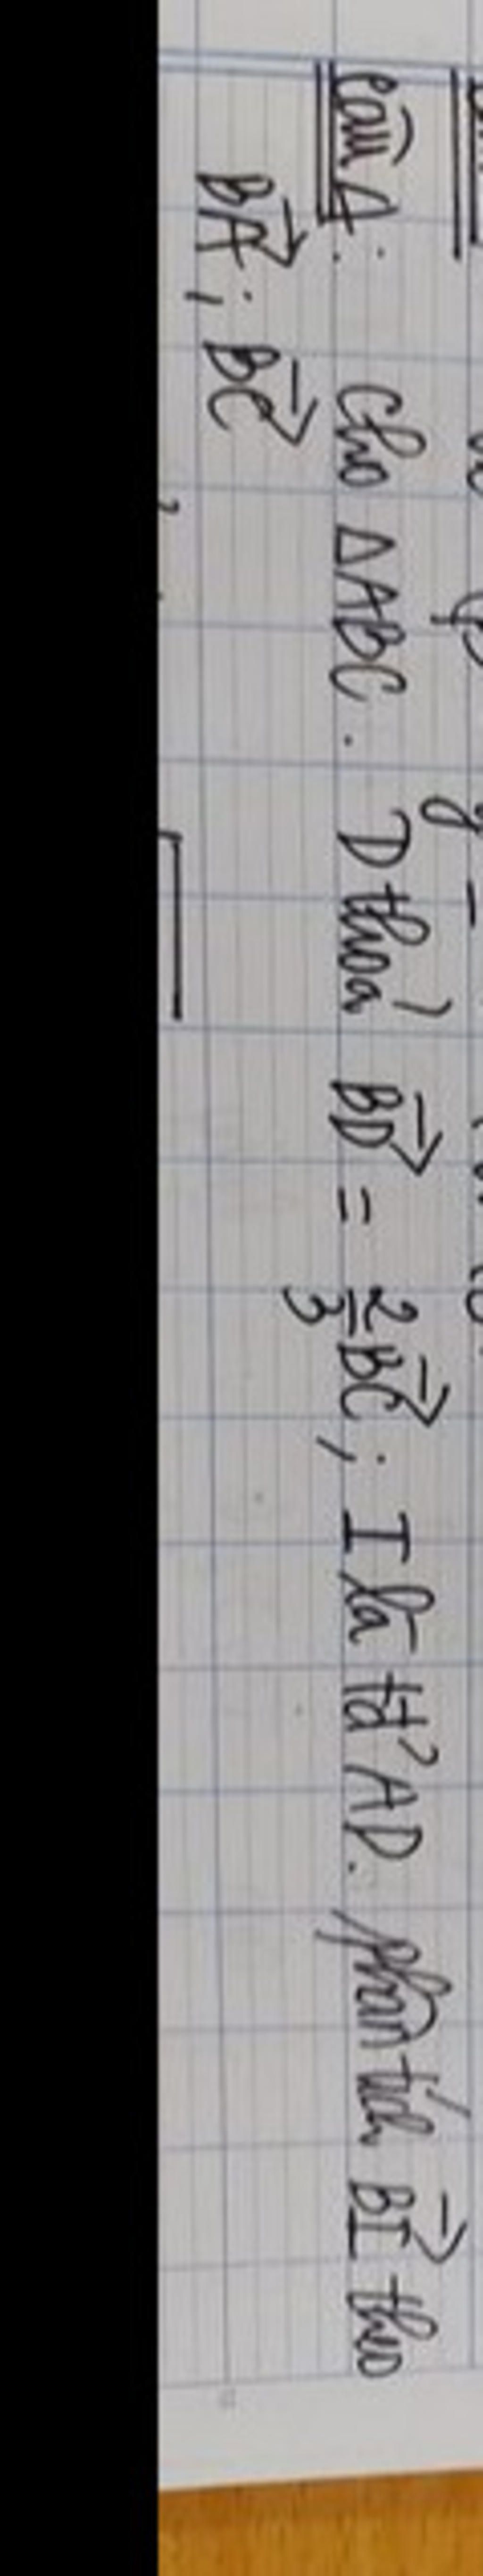 Câu 4: Cho ΔABC. D thoả BD→ = 2/3 BC→; I là tđ' AD. phân tích BI→ theo
BA→; BC→